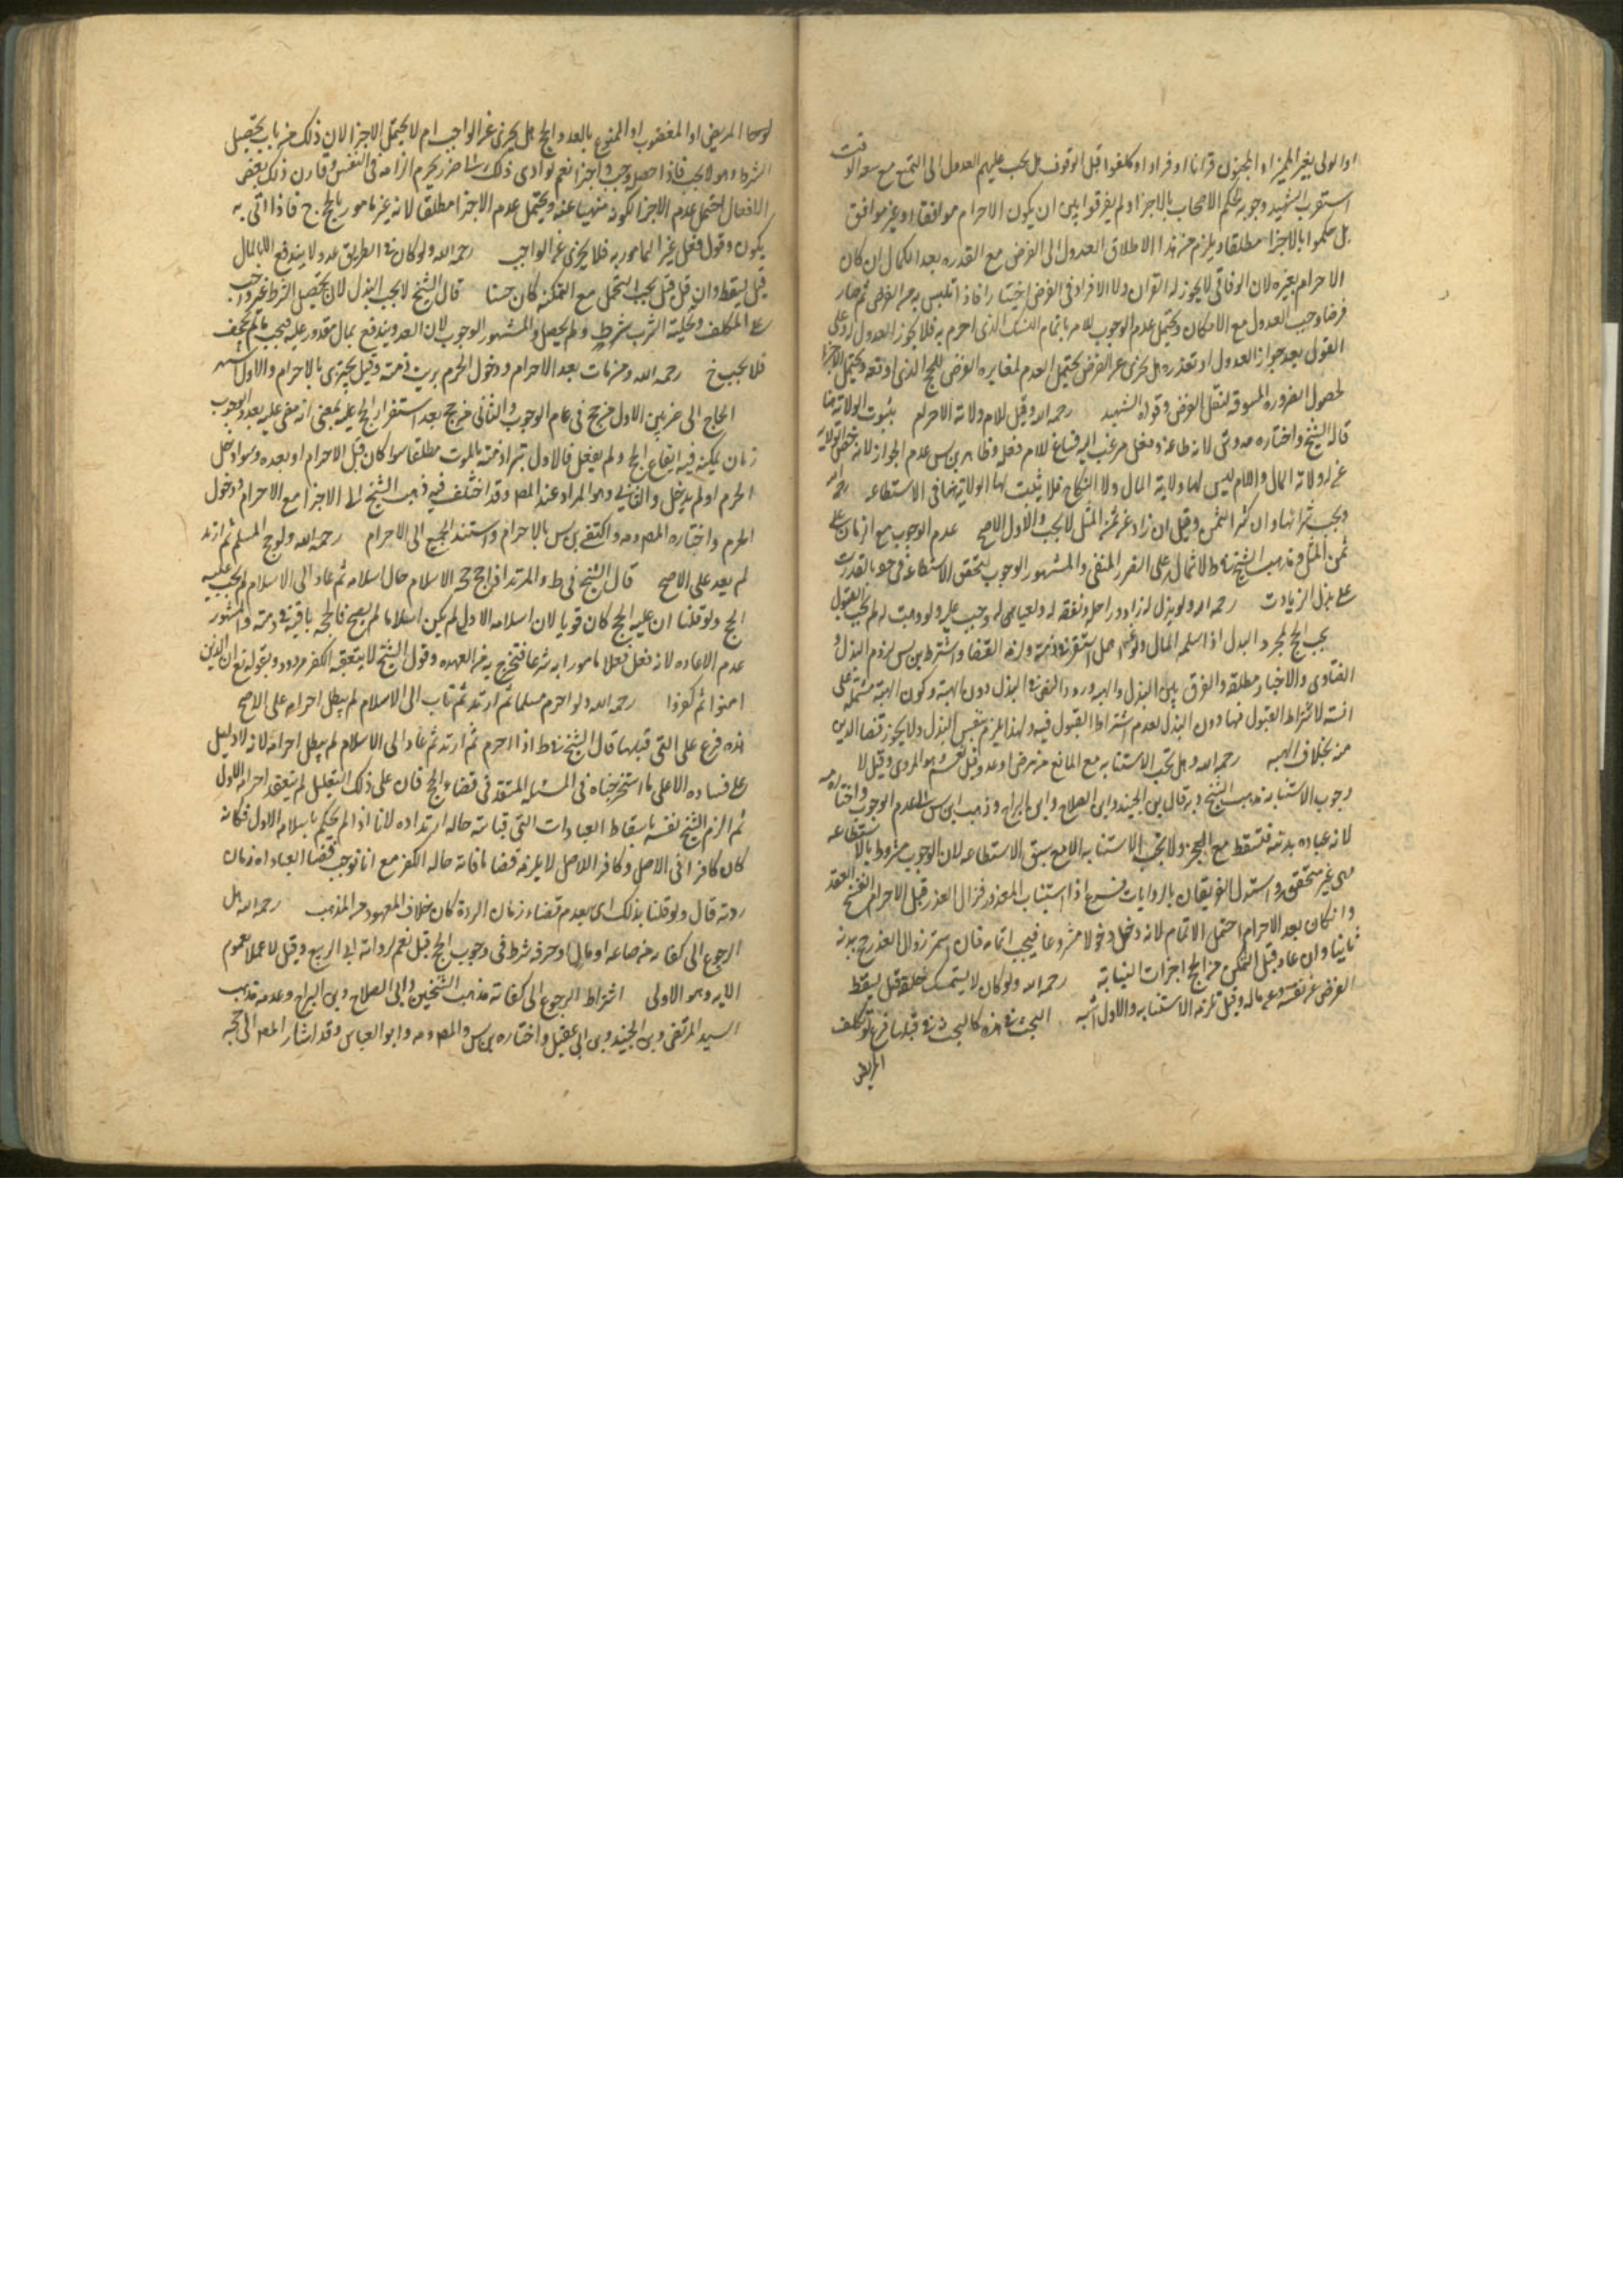 او الولى بغير المميز او المجنون قرانا او فرادا و كلفوا قبل الوقوف هل يجب عليهم العدول الى التمتع مع سعه الوقت
استقرب الشهيد وجوبه لحكم الاصحاب بالاجزا و لم يفرقوا بين ان يكون الاحرام موافقا او غير موافق
بل حكموا بالاجزا مطلقا و يلزم من هذا الاطلاق العدول الى الفرض مع القدره بعد الكمال ان كان
الاحرام بغيره لان الافاقى لا يجوز له القران ولا الافراد فى الفرض اختيارا فاذا تلبس به من الفرض ثم صار
فرضا وجب العدول مع الامكان و يحتمل عدم الوجوب للامر باتمام النسك الذى احرم به فلا يجوز العدول و على
القول بعد جواز العدول او تعذره هل يجزى عن الفرض يحتمل العدم لمغايره الفرض للحج الذى اوقعه و يحتمل الاجزا
لحصول الضروره المسوقه لنقل الفرض و قواه الشهيد رحمه الله و قيل للام ولاية الاحرام بثبوت الولاية هنا
قال الشيخ و اختاره لانه طاعة و فعل مرغب اليه فساغ للام فعله و ظاهر بن س عدم الجواز لانه
غير ولاية المال و الام ليس لها ولاية المال ولا النكاح فلا يثبت لها الولاية هنا فى الاستطاعه رحمه الله
و يجب شرائها و ان كثر الثمن و قيل ان زاد عن ثمن المثل لا يجب و الاول الاصح عدم الوجوب مع الزيادة على
ثمن المثل مذهب الشيخ فى ط لاشتماله على الضرر المنفى و المشهور الوجوب لتحقق الاستطاعه فى حق القادر
على بذل الزيادت رحمه الله و لو بذل له زاد و راحلة و نفقة له و لعياله وجب عليه و لو وهبت له لم يجب القبول
يجب الحج لمجرد البذل اذا سلمه المال و لو اهمل استقر فى ذمته و لزمه القضا و اشترط بن س لزوم البذل و
الفتاوى و الاخبار مطلقه و الفرق بين البذل و الهبه ورود النص فى البذل دون الهبة و كون الهبة مشتملة على
المنة لاشتراط القبول فيها دون البذل لعدم اشتراط القبول فيه و لهذا يلزم بنفس البذل و لا يجوز قضا الدين
منه بخلاف الهبه رحمه الله و هل تجب الاستنابه مع المانع من مرض او عدو قيل نعم و هو المروى و قيل لا
وجوب الاستنابه مذهب الشيخ و به قال بن الجنيد و ابى الصلاح و ابن البراج و ذهب ابن س الى عدم الوجوب و اختاره
لانه عبادة بدنية فتسقط مع العجز و لا تجب الاستنابه الا مع سبق الاستطاعه لان الوجوب مشروط بالاستطاعه
و هى غير متحققه و استدل الفريقان بالروايات فرع اذا استناب المعذور فزال العذر قبل الاحرام انفسخ العقد
و ان كان بعد الاحرام احتمل الاتمام لانه دخل دخولا مشروعا فيجب اتمامه فان استمر زوال العذر حج ببدنه
ثانيا و ان عاد قبل التمكن من الحج اجزات النيابة رحمه الله و لو كان لا يستمسك خلقة قيل يسقط
الفرض عن نفسه و عن ماله و قيل تلزمه الاستنابه و الاول اشبه البحث فى هذه كالبحث فى قبلها فرع لو تكلف
المريض
المريض او المعضوب او الممنوع بالعدو الحج هل يجزى عن الواجب ام لا يحتمل الاجزا لان ذلك من باب تحصيل
الشرط و هو لا يجب فاذا حصل وجب و اجزا نعم لو ادى ذلك الى اضرار يحرم انزاله فى النفس و قارن ذلك بعض
الافعال احتمل عدم الاجزا لكونه منهيا عنه و يحتمل عدم الاجزا مطلقا لانه غير مامور بالحج فاذا اتى به
يكون فعل غير المامور به فلا يجزى عن الواجب رحمه الله و لو كان فى الطريق عدو لا يندفع الا بالمال
قيل يسقط و ان قل و قيل يجب التحمل مع المكنه كان حسنا قال الشيخ لا يجب البذل لان تحصيل الشرط غير واجب
على المكلف و تخلية السرب شرط و لم يحصل و المشهور الوجوب لان العدو يندفع بمال مقدور عليه فيجب ما لم يجحف
فلا يجب ح رحمه الله و من مات بعد الاحرام و دخول الحرم برئت ذمته و قيل يجتزى بالاحرام و الاول اشهر
الحاج الى ضربين الاول من حج فى عام الوجوب و الثانى من حج بعد استقرار الحج عليه بمعنى انه مضى عليه بعد الوجوب
زمان يمكنه فيه ايقاع الحج و لم يفعل فالاول تبرا ذمته بالموت مطلقا سوا كان قبل الاحرام او بعده و سوا دخل
الحرم او لم يدخل و الثانى و هو المراد عند المص و قد اختلف فيه ذهب الشيخ الى الاجزا مع الاحرام و دخول
الحرم و اختاره المص و اكتفى بن س بالاحرام و استند الجميع الى الاحرام رحمه الله و لو حج المسلم ثم ارتد
لم يعد على الاصح قال الشيخ فى ط و المرتد اذا حج حجة الاسلام حال اسلامه ثم عاد الى الاسلام لم يجب عليه
الحج و لو قلنا ان عليه الحج كان قويا لان اسلامه الاول لم يكن اسلاما لم يصح فالحجة باقية فى ذمته و المشهور
عدم الاعاده لانه فعل فعلا مامورا به شرعا فتخرج به من العهده و قول الشيخ لا يتعقبه الكفر مردود بقوله تع ان الذين
امنوا ثم كفروا رحمه الله و لو احرم مسلما ثم ارتد ثم تاب الى الاسلام لم يبطل احرامه على الاصح
هذه فرع على التى قبلها قال الشيخ فى ط اذا احرم ثم ارتد ثم عاد الى الاسلام لم يبطل احرامه لانه لا دليل
على فساده الا على ما استخرجناه فى المسئله المتقدمة فى قضاء الحج فان على ذلك التعليل لم ينعقد احرامه الاول
ثم الزم الشيخ نفسه باسقاط العبادات التى فاتته حالة ارتداده لانا اذا لم نحكم باسلامه الاول فكانه
كان كافرا فى الاصل و كافر الاصل لا يلزمه قضا ما فاته حاله الكفر مع انا نوجب قضا العبادة زمان
ردته قال و لو قلنا بذلك اى بعدم قضاء زمان الردة كان خلاف المعهود من المذهب رحمه الله هل
الرجوع الى كفايه من صناعه او مال او حرفه شرط فى وجوب الحج قيل نعم لرواية ابى الربيع و قيل لا عملا بعموم
الايه و هو الاولى اشتراط الرجوع الى كفاية مذهب الشيخين و ابى الصلاح و بن البراج و عدمه مذهب
السيد المرتضى و بن الجنيد و بن ابى عقيل و اختاره بن س و المص و ابو العباس و قد اشار المص الى حجة